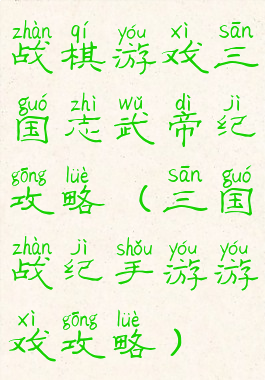 zhàn qí yóu xì sān
战棋游戏三
guó zhì wǔ dì jì
国志武帝纪
gōng lüè sān guó
攻略（三国
zhàn jì shǒu yóu yóu
战纪手游游
xì gōng lüè
戏攻略）